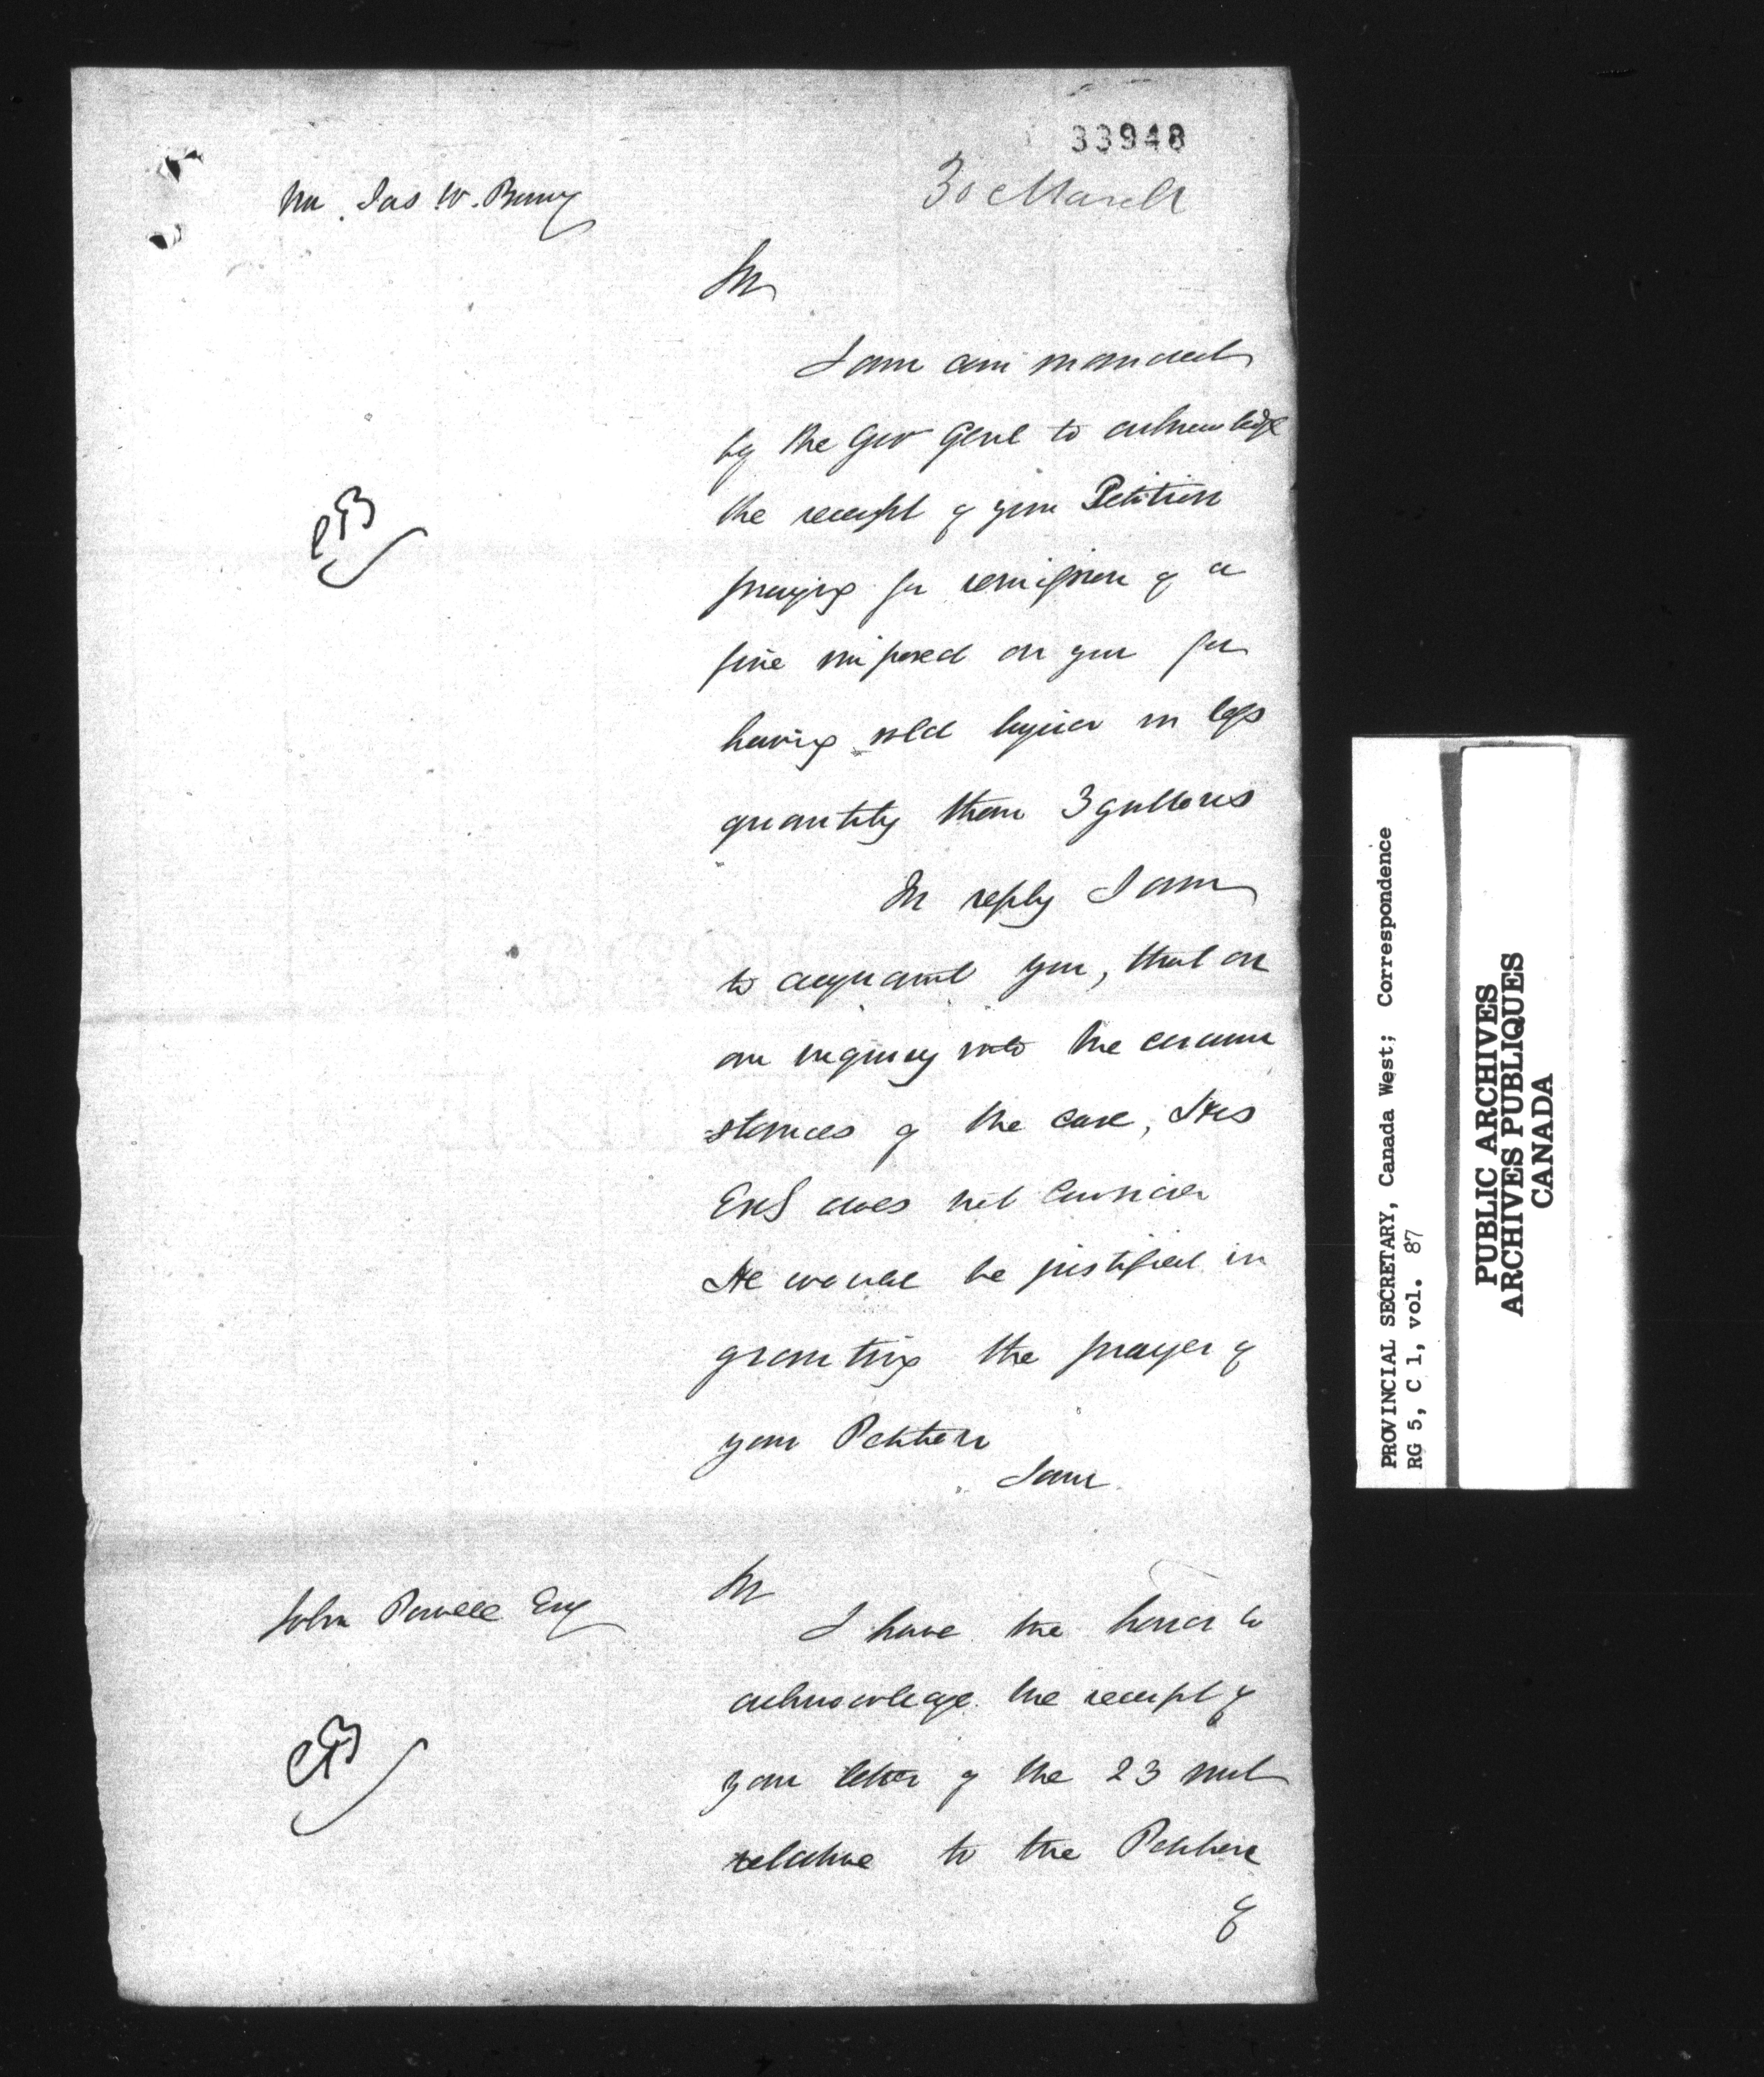 33948
30 March
Mr. Jas W.
Sir
I am commanded
by the Gov Genl to acknowledge
the receipt of your Petition
praying for remission of a
fine imposed on you for
having sold liquor in less
quantity than 3 gallons
In reply I am
to acquaint you, that on
an inquiry into the circum
stances of the case, His
Exc does not consider
He would be justified in
granting the prayer of
your Petition
I am
John Powell Esq
Sir
I have the honor to
acknowledge the receipt of
your letter of the 23 inst
relative to the Petition
of
PROVINCIAL SECRETARY, Canada West; Correspondence
RG 5, C 1, vol. 87
PUBLIC ARCHIVES
ARCHIVES PUBLIQUES
CANADA